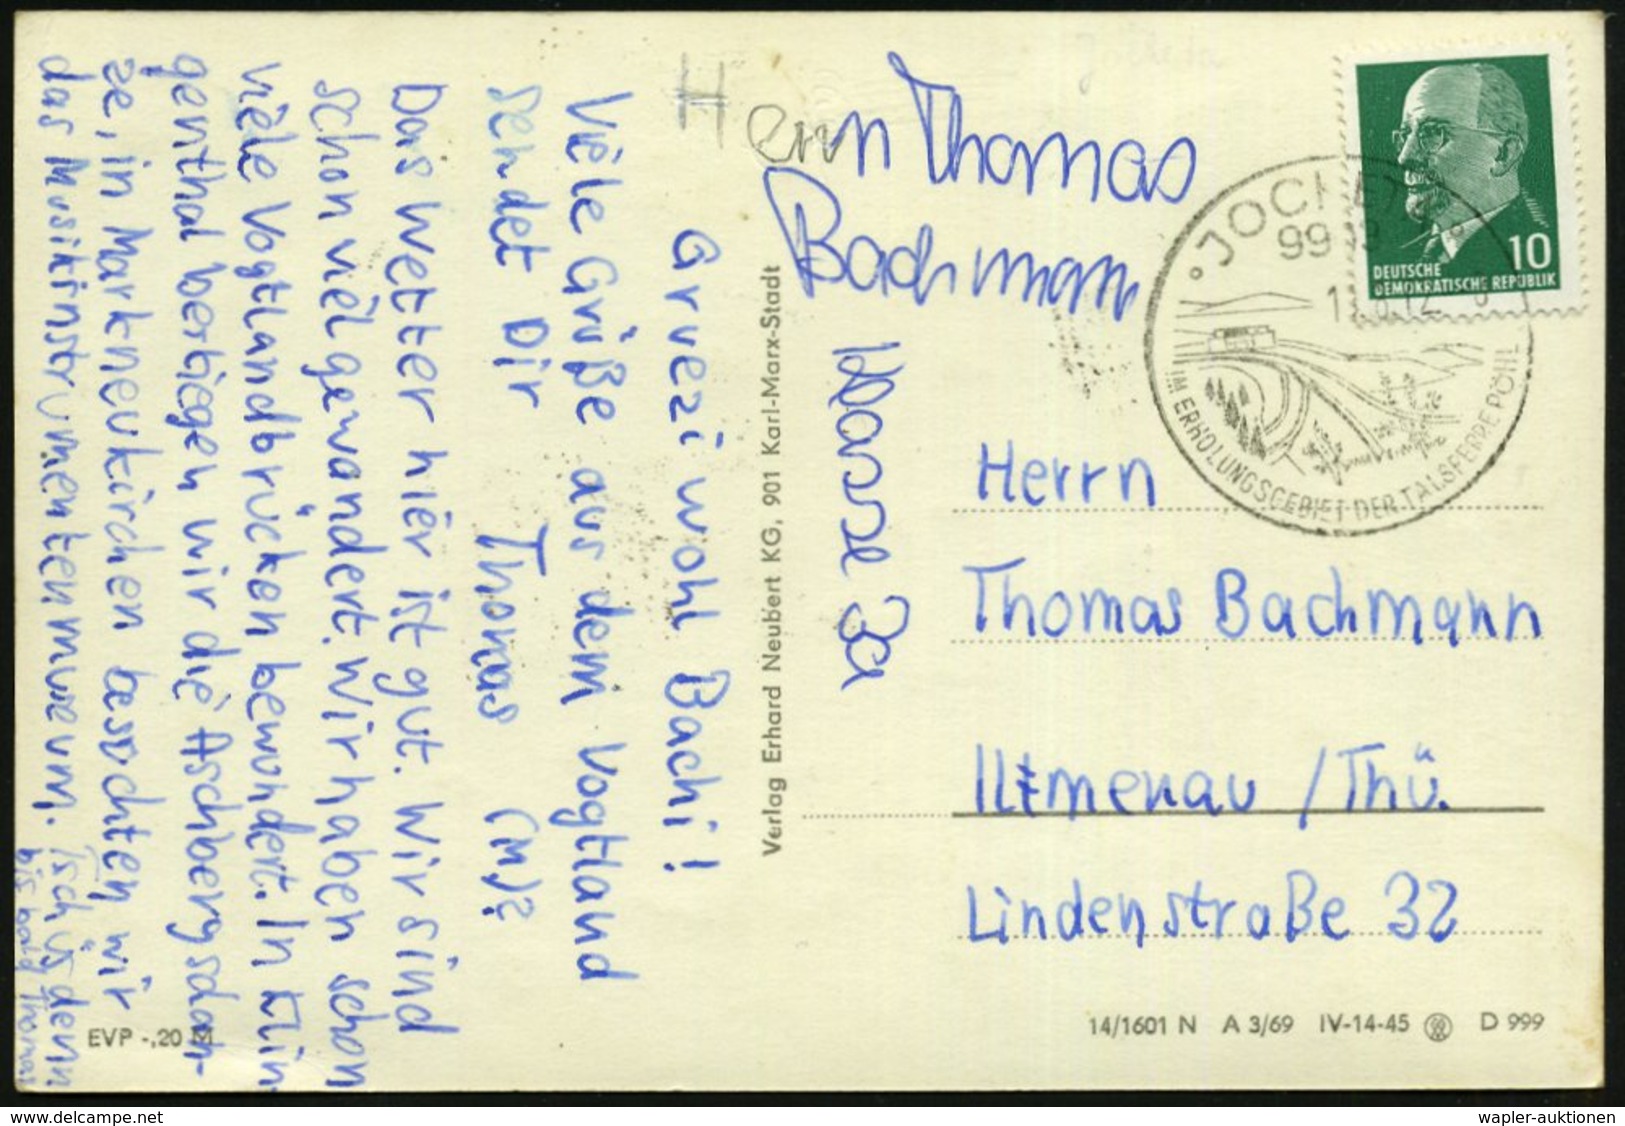 Gruezi wohl Bachi!
Viele Grüße aus dem Vogtland
sendet Dir Thomas (M)?
Das Wetter hier ist gut. Wir sind
schon viel gewandert. Wir haben schon
viele Vogtlandbrücken bewundert. In Klin-
genthal bertiegen wir die Aschbergsdan-
ze, in Markneukirchen besuchten wir
das Musikinstrumentenmuseum. Tschüs denn
bis bald Thomas
EVP -,20 M
Verlag Erhard Neubert KG, 901 Karl-Marx-Stadt
H
errn Thomas
Bachmann
Klasse 3a
DEUTSCHE
DEMOKRATISCHE REPUBLIK
10
JOCKETA
IM ERHOLUNGSGEBIET DER TALSPERRE PÖHL
Herrn
Thomas Bachmann
Iltmenau / Thü.
Lindenstraße 32
14/1601 N A 3/69 IV-14-45 D 999
www.delcampe.net
wapler-auktionen